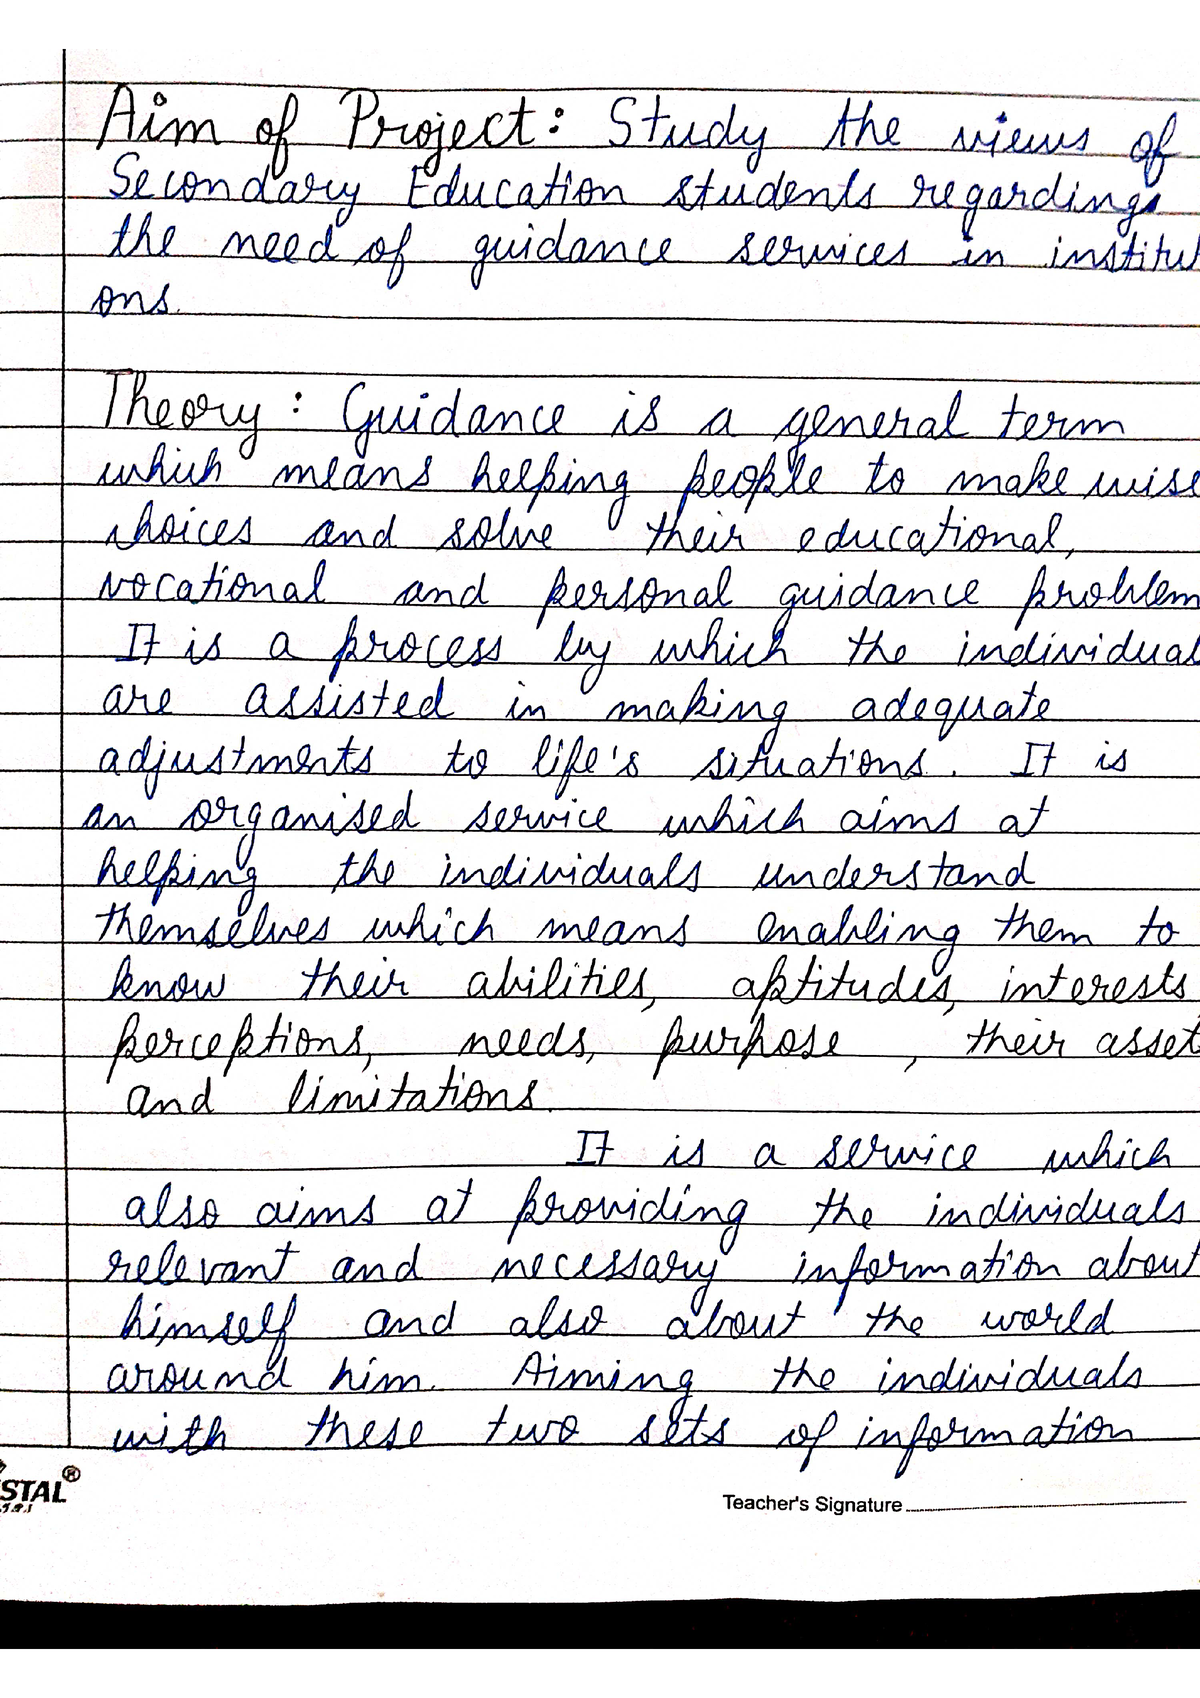 Aim of Project: Study the views of
Secondary Education students regarding
the need of guidance services in institut
ons.
Theory: Guidance is a general term
which means helping people to make wise
choices and solve their educational,
vocational and personal guidance problem
It is a process by which the individual
are assisted in making adequate
adjustments to life's situations. It is
an organised service which aims at
helping the individuals understand
themselves which means enabling them to
know their abilities, aptitudes, interests
perceptions, needs, purpose, their asset
and limitations.
It is a service which
also aims at providing the individuals
relevant and necessary information about
himself and also about the world
around him. Aiming the individuals
with these two sets of information
STAL®
Teacher's Signature